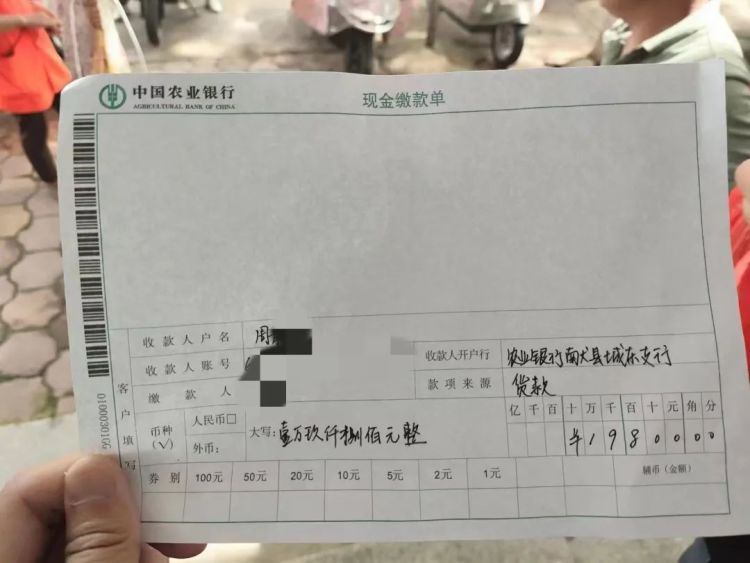 中国农业银行
AGRICULTURAL BANK OF CHINA
现金缴款单
收款人户名 周
收款人账号
收款人开户行 农业银行南县城东支行
缴款人
款项来源 货款
客户填写
币种(√)
人民币□
外币:
大写: 壹万玖仟捌佰元整
亿千百十万千百十元角分
¥1980000
券别 100元 50元 20元 10元 5元 2元 1元 辅币(金额)